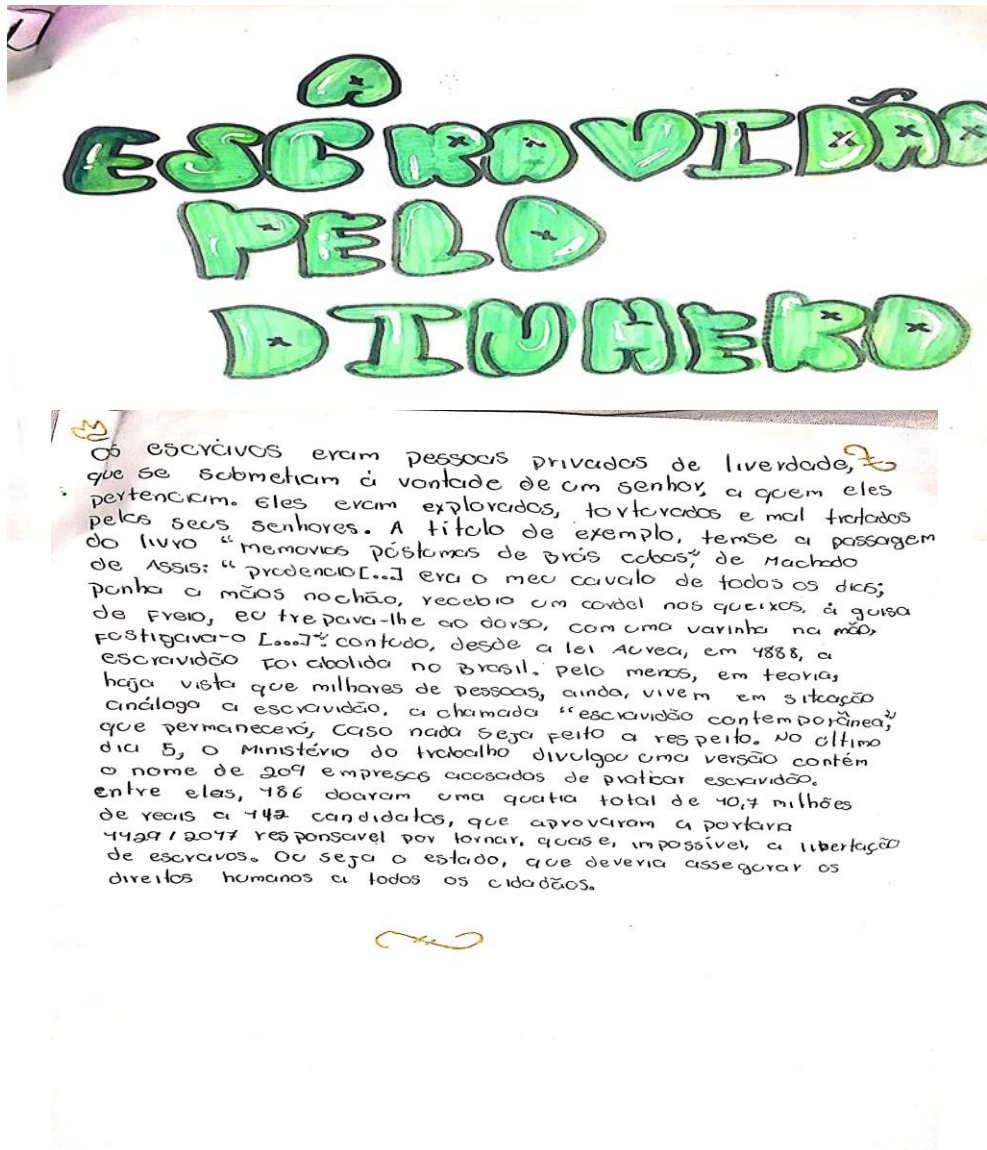 A
ESCRAVIDÃO
PELO
DINHERO
Os escrávos eram pessoas privadas de liverdade,
que se submetiam à vontade de um senhor, a quem eles
pertenciam. Eles eram explorados, torturados e mal tratados
pelos seus senhores. A título de exemplo, temse a passagem
do livro "memorias póstumas de Brás cubas", de Machado
de Assis: "prudencio[...] era o meu cavalo de todos os dias;
punha a mãos nochão, recebia um cordel nos queixos, à guisa
de Freio, eu trepava-lhe ao dorso, com uma varinha na mão,
Fustigava-o [...]". contudo, desde a lei Aurea, em 1888, a
escravidão Foi abolida no Brasil. pelo menos, em teoria,
haja vista que milhares de pessoas, ainda, vivem em situação
análoga a escravidão, a chamada "escravidão contemporânea",
que permanecerá, caso nada seja feito a respeito. No último
dia 5, o Ministério do trabalho divulgou uma versão contém
o nome de 209 empresas acusados de praticar escravidão.
entre elas, 186 doaram uma quatia total de 10,7 milhões
de reais a 142 candidatos, que aprovaram a portara
1129/2017 responsavel por tornar, quase, impossível, a libertação
de escravos. Ou seja o estado, que deveria assegurar os
direitos humanos a todos os cidadãos.